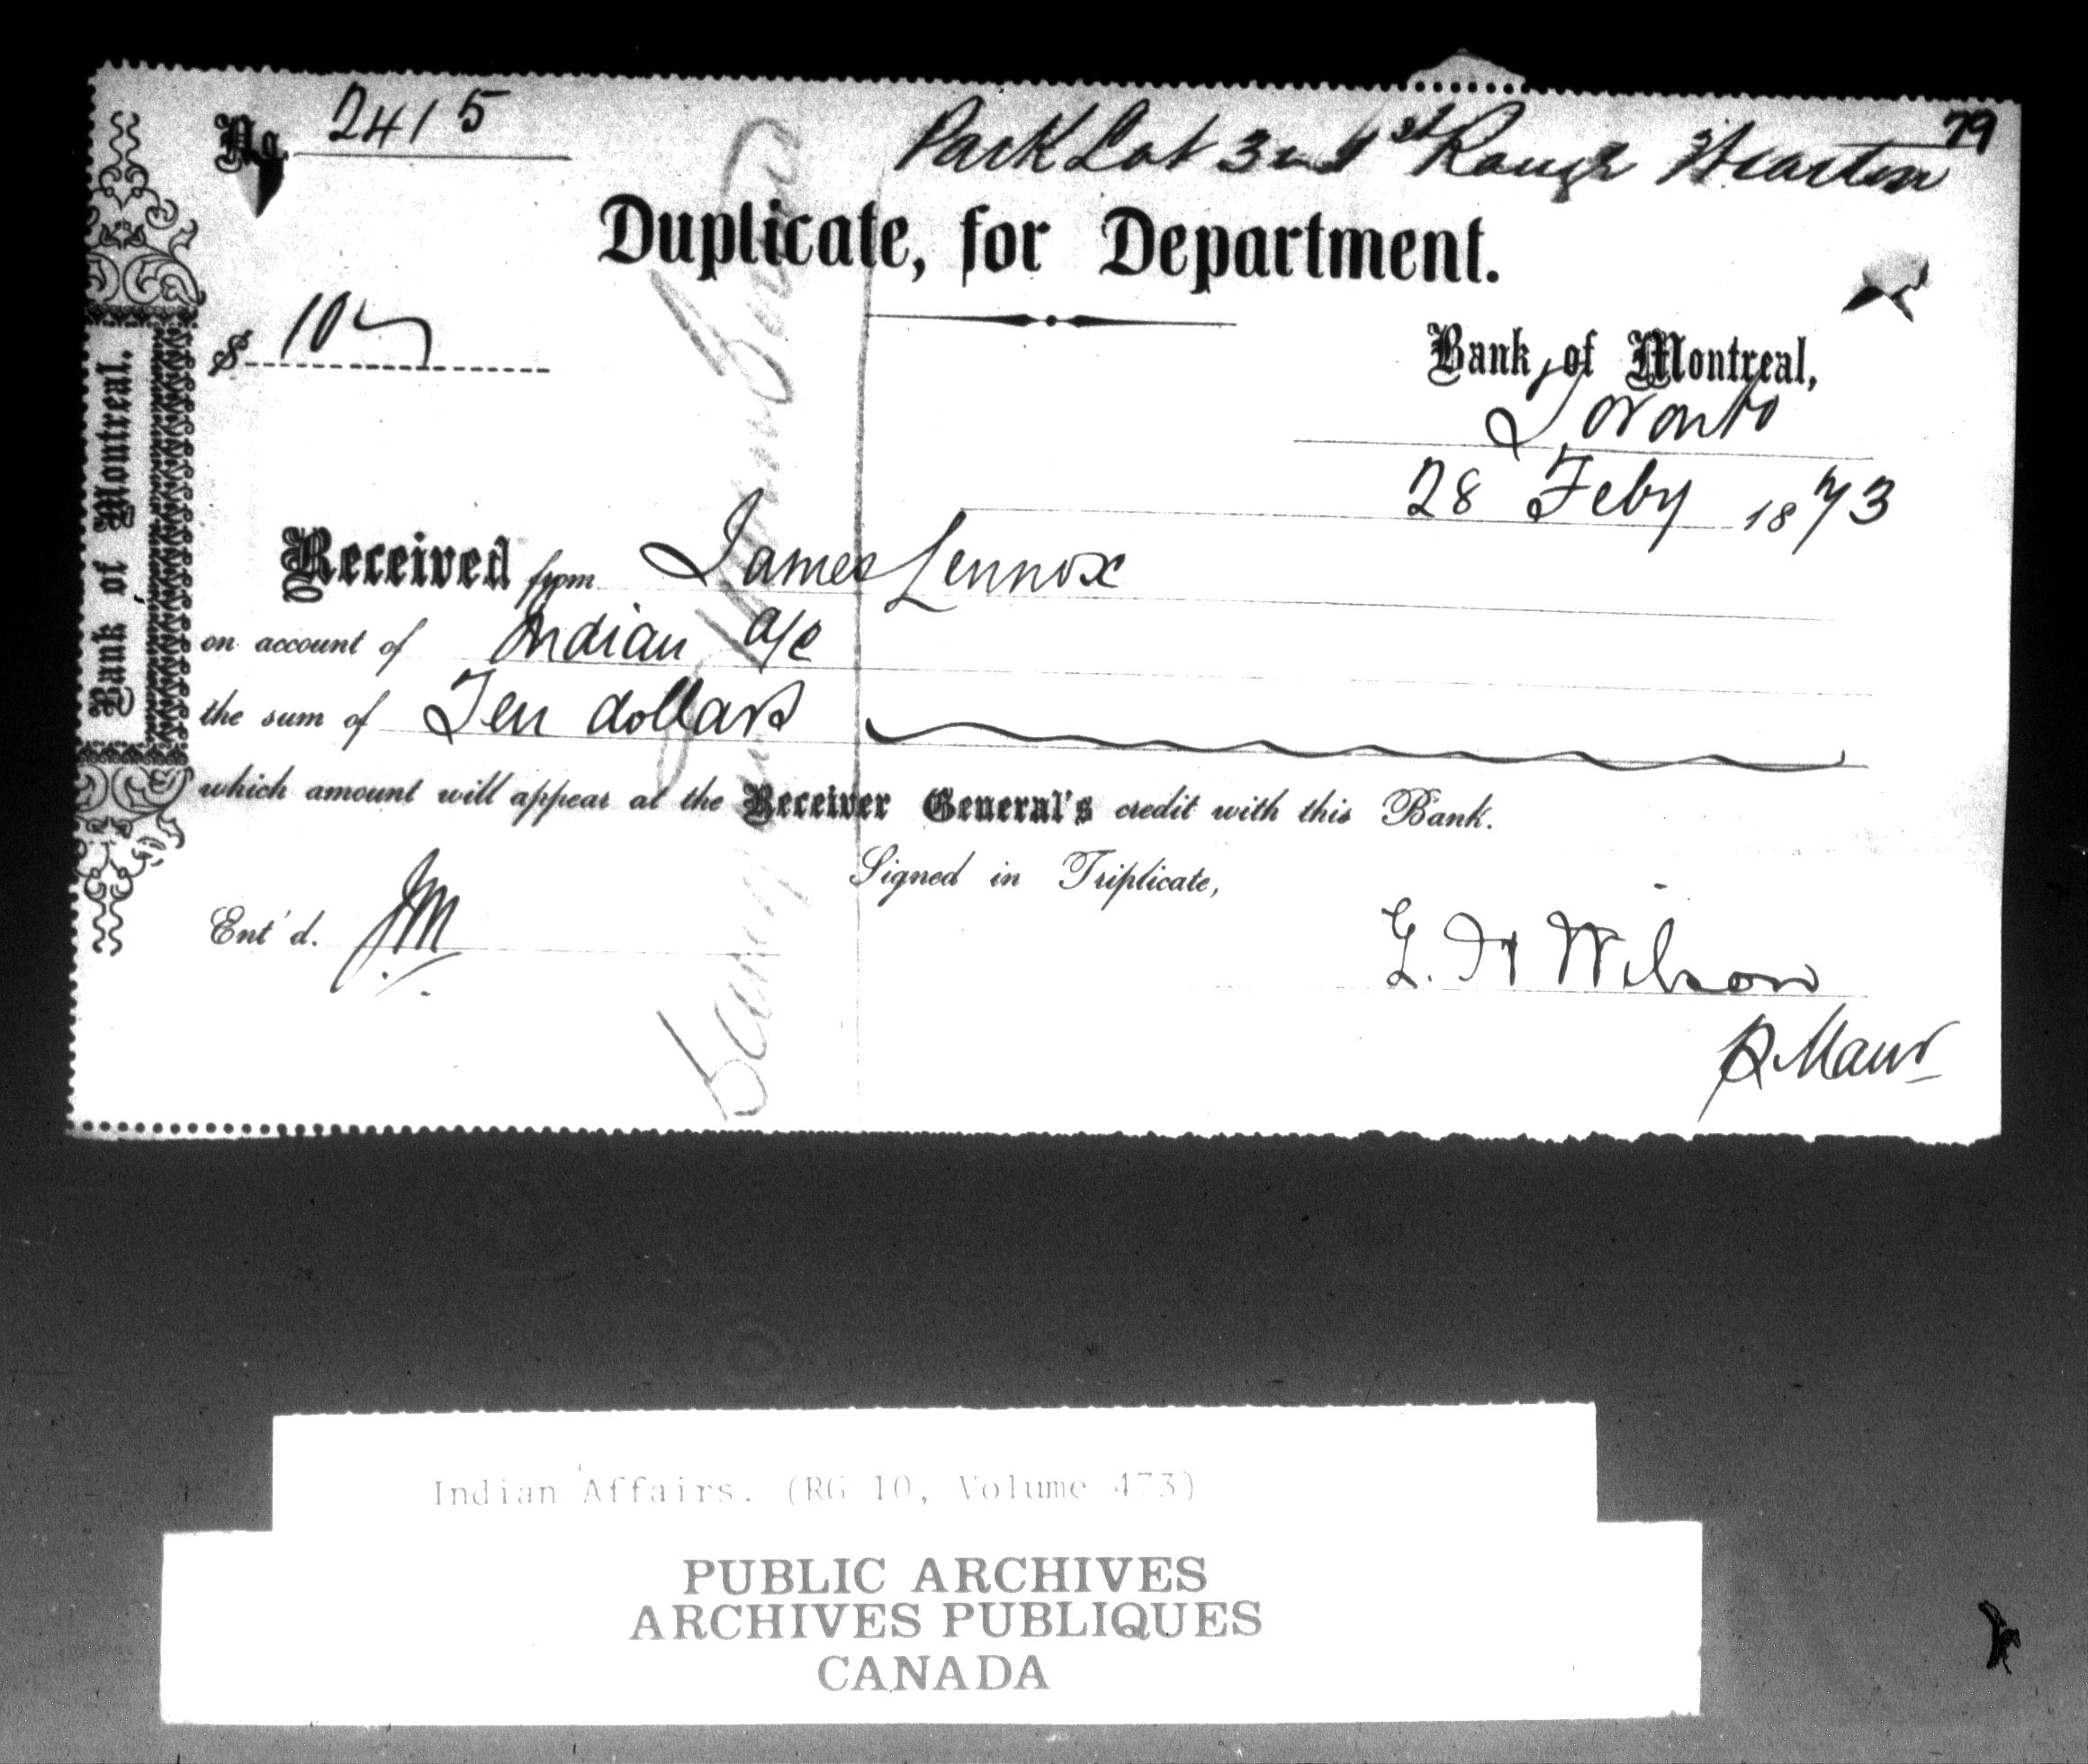 79
No. 2415
Park Lot 3 1st Range Wiarton
Duplicate, for Department.
$ 10
Bank of Montreal,
Toronto
28 Feby 1873
Received from James Lennox
on account of Indian a/c
the sum of Ten dollars
which amount will appear at the Receiver General's credit with this Bank.
Signed in Triplicate,
Ent'd. JM
G. H Wilson
Bank of Montreal.
Indian Affairs. (RG 10, Volume 473)
PUBLIC ARCHIVES
ARCHIVES PUBLIQUES
CANADA